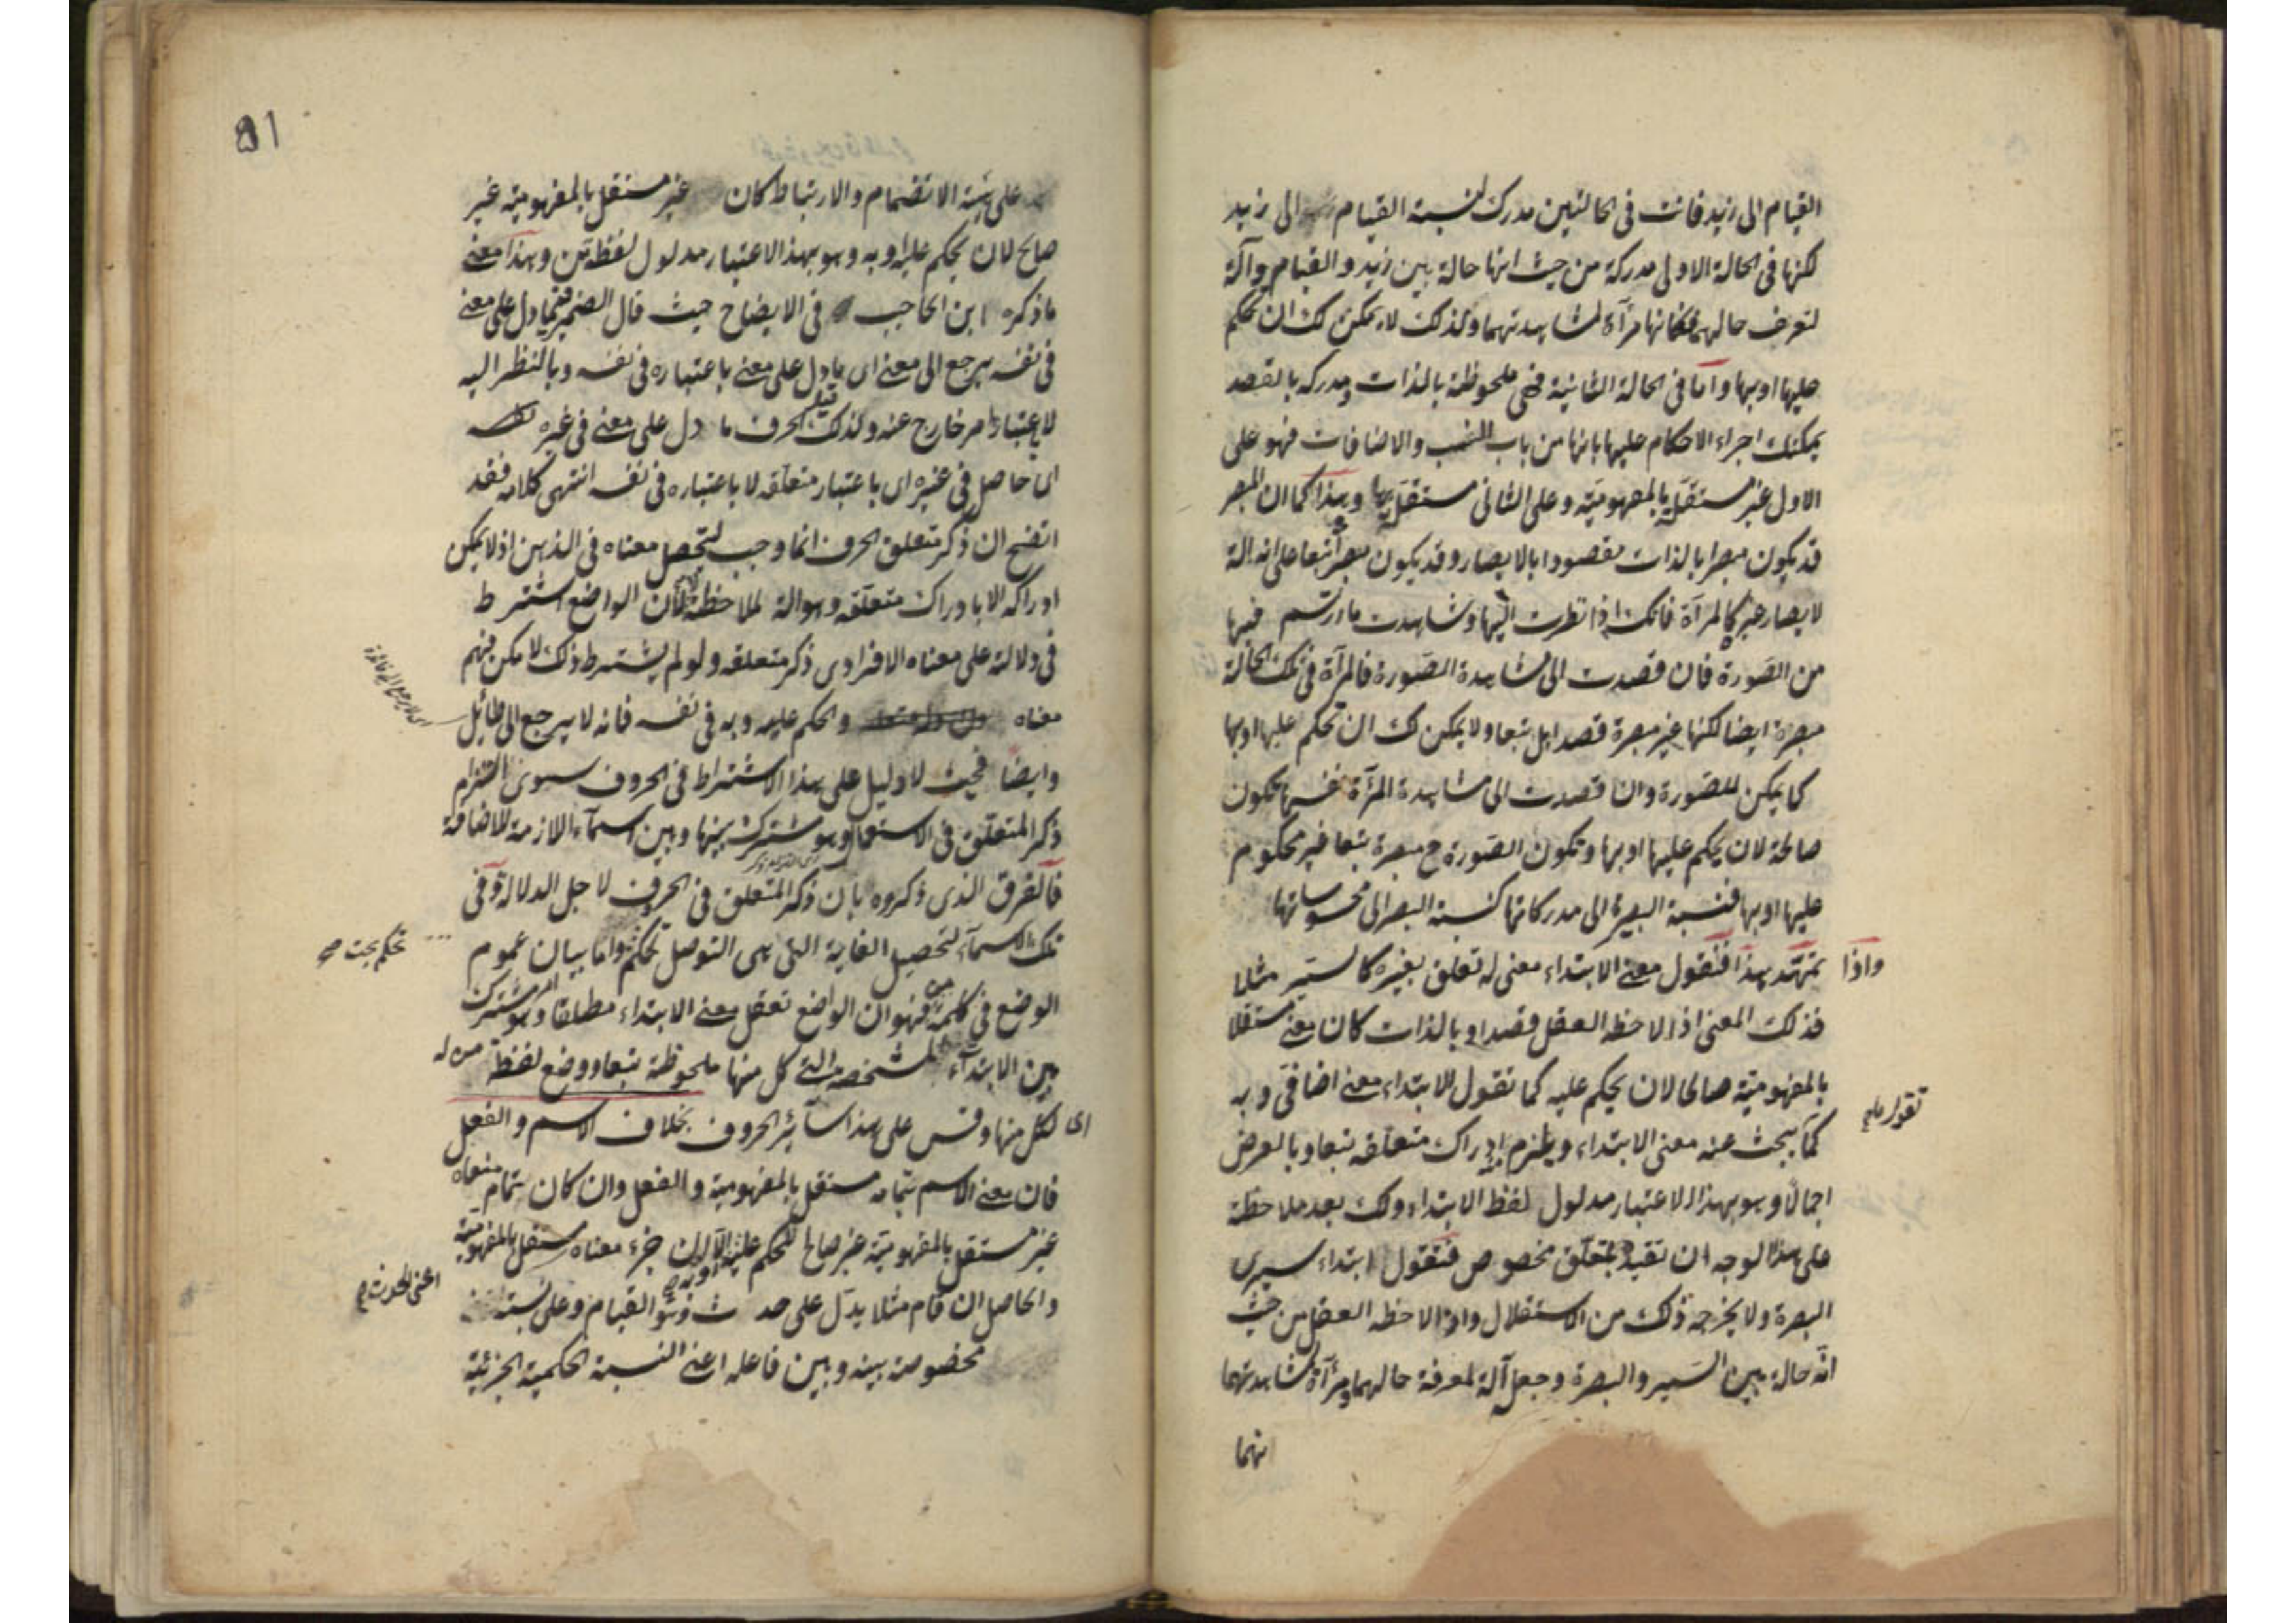 القيام الى زيد فانت فى الحالتين مدرك لنسبة القيام الى زيد
لكنها فى الحالة الاولى مدركة من حيث انها حالة بين زيد والقيام وآلة
لتعرف حالهما فكانها مرآة لمشاهدتهما ولذلك لا يمكن لك ان تحكم
عليها او بها واما فى الحالة الثانية فهى ملحوظة بالذات ومدركه بالقصد
يمكنك اجراء الاحكام عليها بانها من باب النسب والاضافات فهو على
الاول غير مستقلة بالمفهومية وعلى الثانى مستقل بها وهذا كما ان المبصر
قد يكون مبصرا بالذات مقصودا بالابصار وقد يكون مبصرا تبعا على انه الة
لابصار غيره كالمرآة فانك اذا نظرت اليها وشاهدت ما ارتسم فيها
من الصورة فان قصدت الى مشاهدة الصورة فالمرآة فى تلك الحالة
مبصرة ايضا لكنها غير مبصرة قصدا بل تبعا ولا يمكن لك ان تحكم عليها او بها
كما يمكن للصورة وان قصدت الى مشاهدة المرآة نفسها تكون
صالحة لان يحكم عليها او بها وتكون الصورة ح مبصرة تبعا غير محكوم
عليها او بها فنسبة البصيرة الى مدركاتها كنسبة البصر الى محسوساتها
واذا تمهد هذا فنقول معنى الابتداء معنى له تعلق بغيره كالسير مثلا
فذلك المعنى اذا لاحظه العقل قصدا وبالذات كان معنى مستقلا
بالمفهومية صالحا لان يحكم عليه كما تقول الابتداء معنى اضافى وبه
كما يبحث عنه معنى الابتداء ويلزم ادراك متعلقه تبعا وبالعرض
تقول
اجمالا وهو بهذا الاعتبار مدلول لفظ الابتداء ولك بعد ملاحظة
على هذا الوجه ان تقيد بمتعلق مخصوص فتقول ابتداء سيرى
البصرة ولا يخرجه ذلك من الاستقلال واذا لاحظه العقل من حيث
انه حالة بين السير والبصرة وجعل آلة لمعرفة حالهما ومرآة لمشاهدتهما
انهما
81
على هيئة الانضمام والارتباط كان غير مستقل بالمفهومية غير
صالح لان يحكم عليه او به وهو بهذا الاعتبار مدلول لفظة من وهذا معنى
ما ذكره ابن الحاجب فى الايضاح حيث قال الضمير فيما دل على معنى
فى نفسه يرجع الى معنى اى ما دل على معنى باعتباره فى نفسه وبالنظر اليه
لا باعتبار امر خارج عنه ولذلك قيل الحرف ما دل على معنى فى غيره
اى حاصل فى غيره اى باعتبار متعلقه لا باعتباره فى نفسه انتهى كلامه فقد
اتضح ان ذكر متعلق الحرف انما وجب لتحصل معناه فى الذهن اذ لا يمكن
ادراكه الا بادراك متعلقه وهو الة لملاحظة لا ان الواضع اشترط
فى دلالته على معناه الافرادى ذكر متعلقه ولو لم يشترط ذلك لامكن فهم
معناه والحكم عليه وبه فى نفسه فانه لا يرجع الى طائل
وايضا فحيث لا دليل على هذا الاشتراط فى الحروف سوى التزام
ذكر المتعلق فى الاستعمال وهو مشترك بينها وبين الاسماء اللازمة للاضافة
فالفرق الذى ذكروه بان ذكر المتعلق فى الحروف لاجل الدلالة وفى
تلك الاسماء لتحصيل الغاية التى هى التوصل تحكم واما بيان عموم
تحكم بحت صح
الوضع فى كلمة من فهو ان الواضع تعقل معنى الابتداء مطلقا وهو امر مشترك
بين الابتداآت المشخصة التى كل منها ملحوظة تبعا ووضع لفظة من له
اى لكل منها وقس على هذا سائر الحروف بخلاف الاسم والفعل
فان معنى الاسم بتمامه مستقل بالمفهومية والفعل وان كان تمام معناه
غير مستقل بالمفهومية غير صالح للحكم عليه او به الا ان جزء معناه مستقل بالمفهومية
اعنى الحدث
والحاصل ان قام مثلا يدل على حدث وهو القيام وعلى نسبة
مخصوصة بينه وبين فاعله اعنى النسبة الحكمية الجزئية